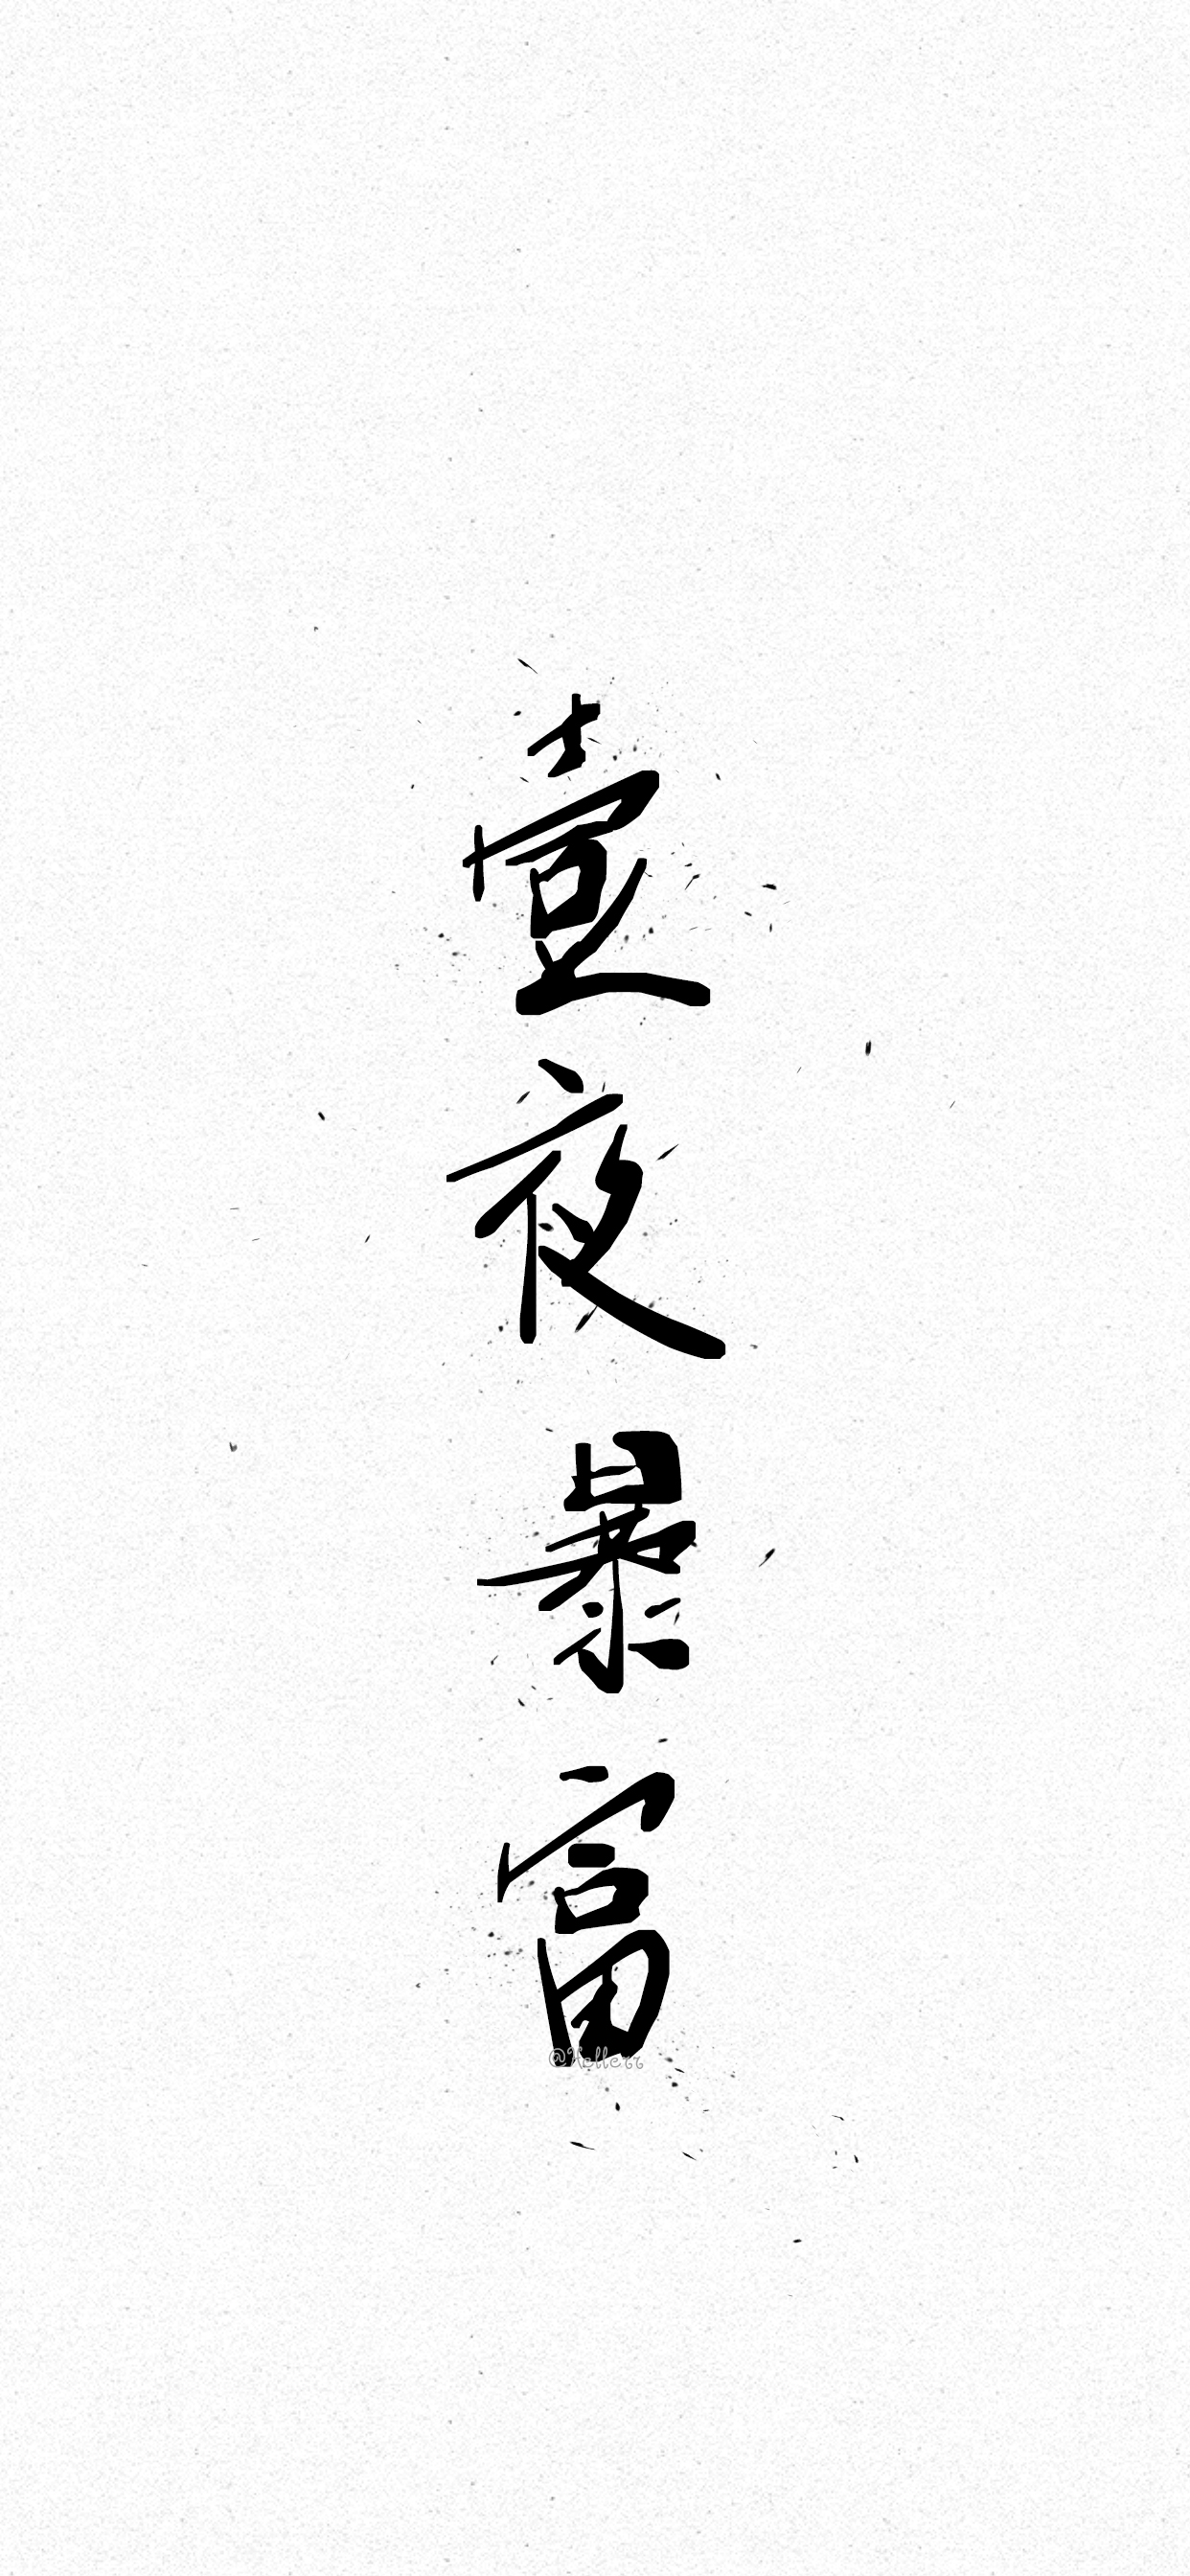 壹夜暴富
@Hellerr